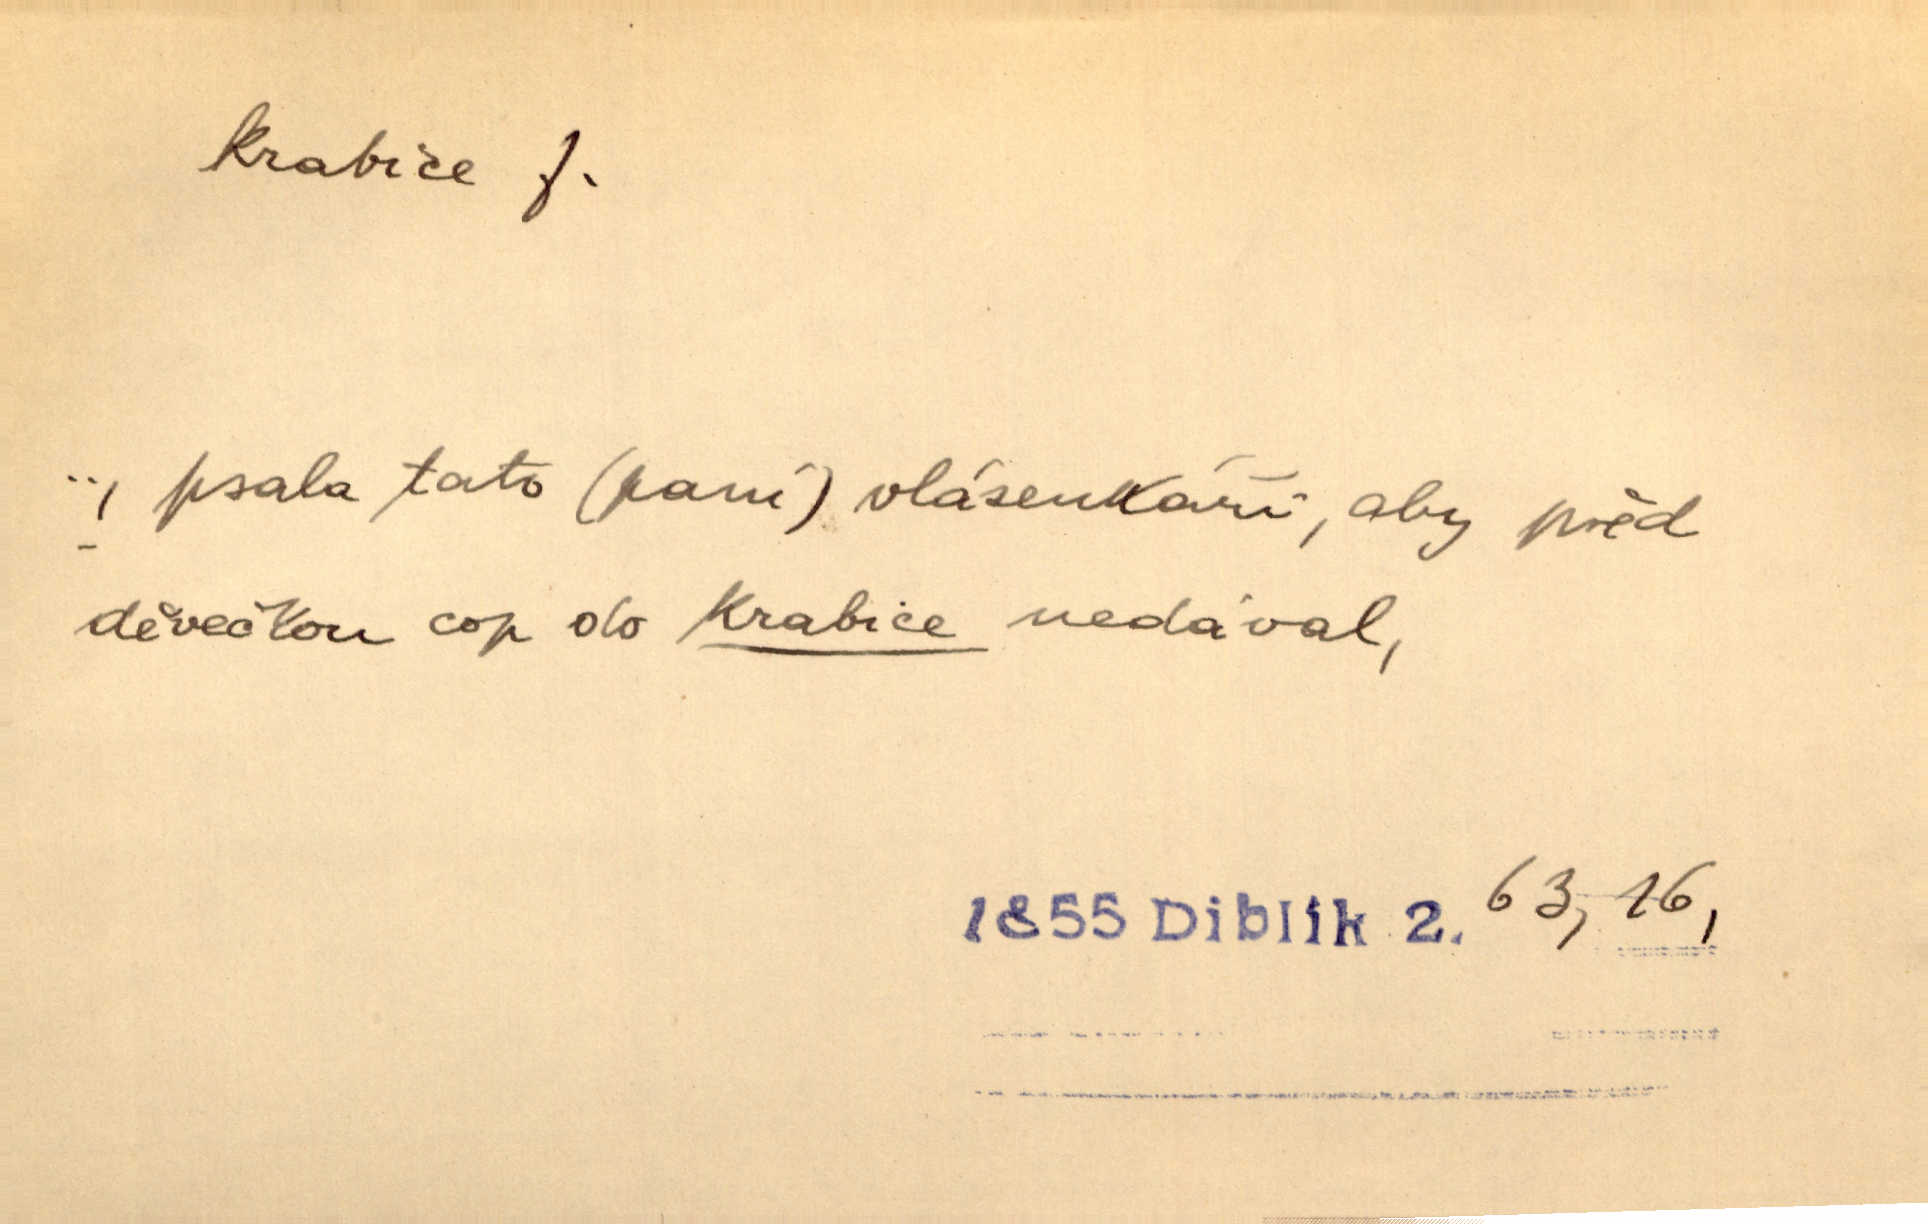 krabice f.
.., psala tato (paní) vlásenkáři, aby před
děvečkou cop do krabice nedával,
1855 Diblík 2. 63, 16,